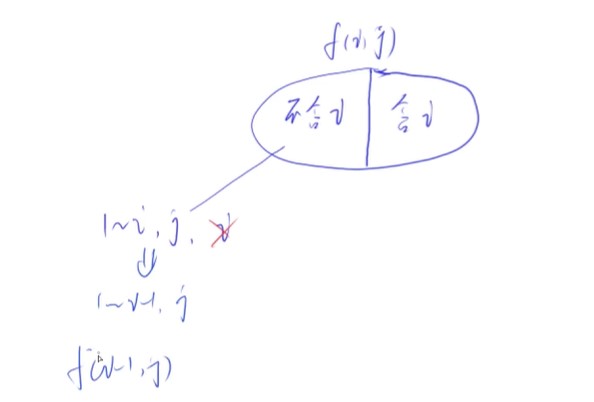 f(i,j)
不含i 含i
1~i, j, i
1~i-1, j
f(i-1, j)